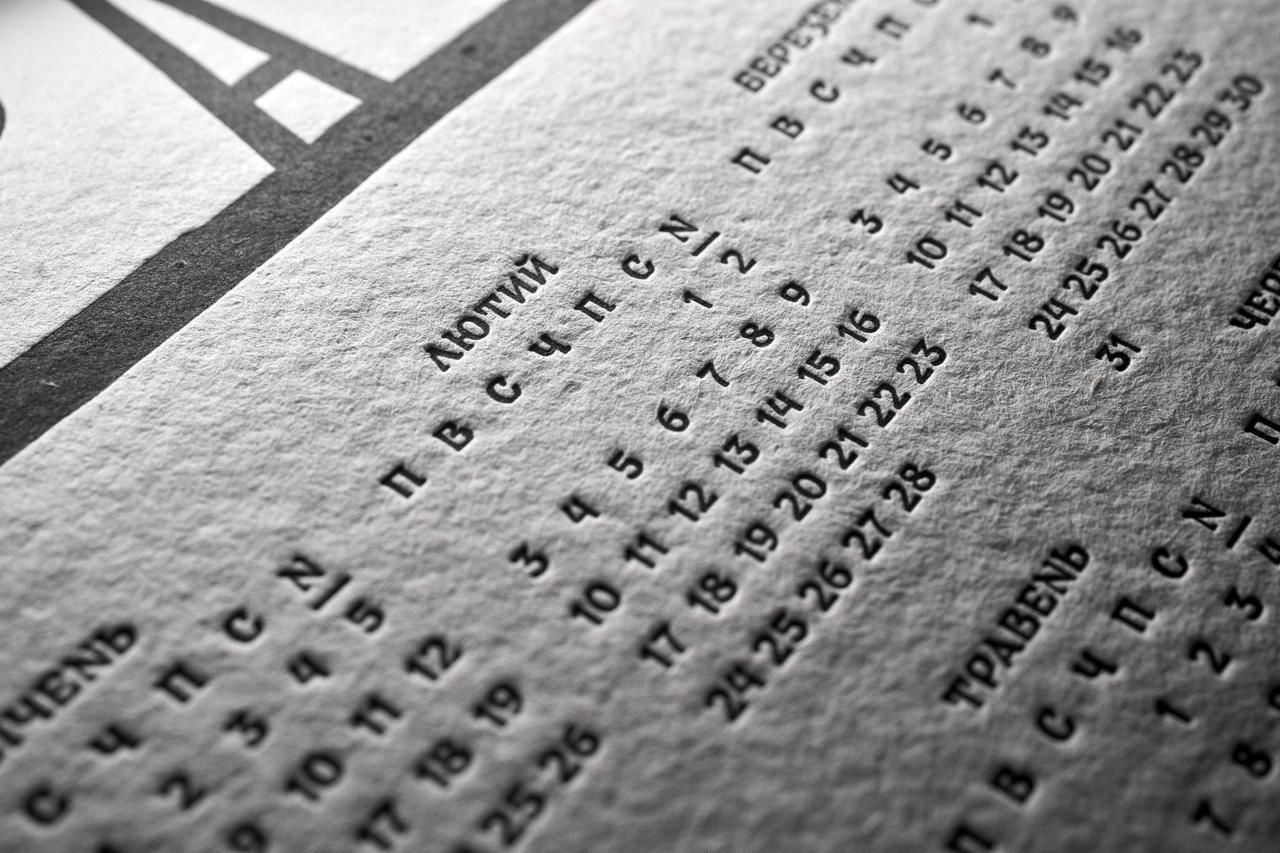 А
СІЧЕНЬ
С Ч П С Н
2 3 4 5
9 10 11 12
17 18 19
25 26
ЛЮТИЙ
П В С Ч П С Н
1 2
3 4 5 6 7 8 9
10 11 12 13 14 15 16
17 18 19 20 21 22 23
24 25 26 27 28
БЕРЕЗЕН
П В С Ч П
1
3 4 5 6 7 8 9
10 11 12 13 14 15 16
17 18 19 20 21 22 23
24 25 26 27 28 29 30
31
ТРАВЕНЬ
П В С Ч П С Н
1 2 3 4
7 8
ЧЕР
П